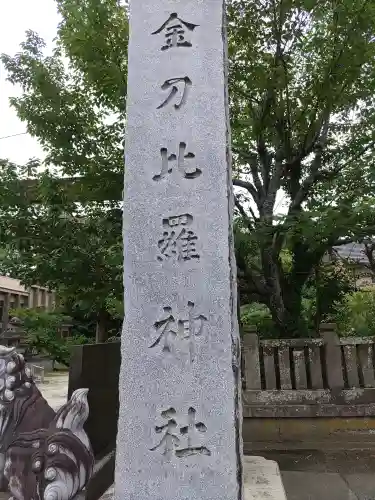 金刀比羅神社